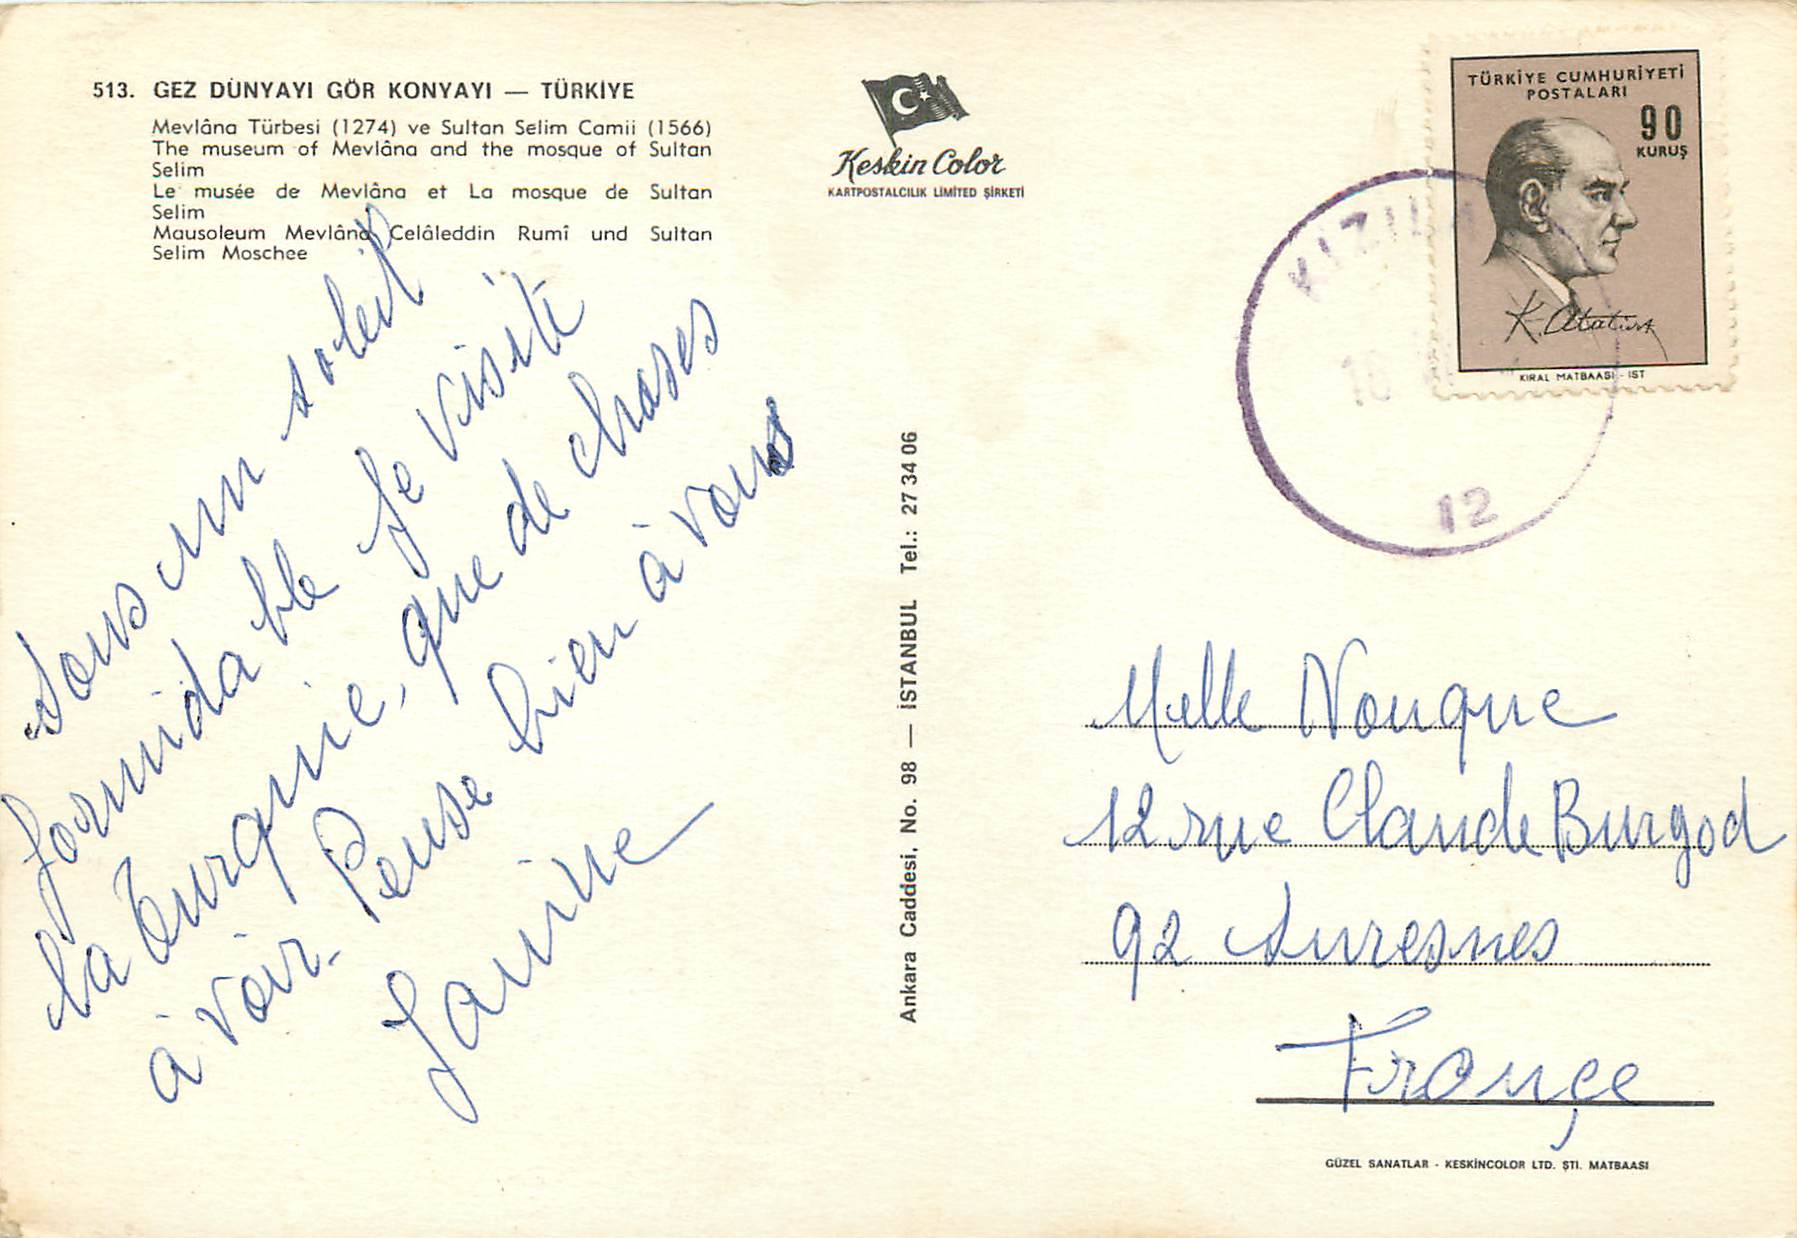 513. GEZ DÜNYAYI GÖR KONYAYI — TÜRKİYE
Mevlâna Türbesi (1274) ve Sultan Selim Camii (1566)
The museum of Mevlâna and the mosque of Sultan
Selim
Le musée de Mevlâna et La mosque de Sultan
Selim
Mausoleum Mevlâna Celâleddin Rumî und Sultan
Selim Moschee
Keskin Color
KARTPOSTALCILIK LİMİTED ŞİRKETİ
TÜRKİYE CUMHURİYETİ
POSTALARI
90
KURUŞ
K. Atatürk
KIRAL MATBAASI - IST
12
Sous un soleil
formidable je visite
la Turquie, que de choses
à voir. Pense bien à vous
Janine
Ankara Caddesi, No. 98 — İSTANBUL Tel.: 27 34 06
Melle Nouque
12 rue Claude Burgod
92 Suresnes
Françe
GÜZEL SANATLAR - KESKİNCOLOR LTD. ŞTI. MATBAASI